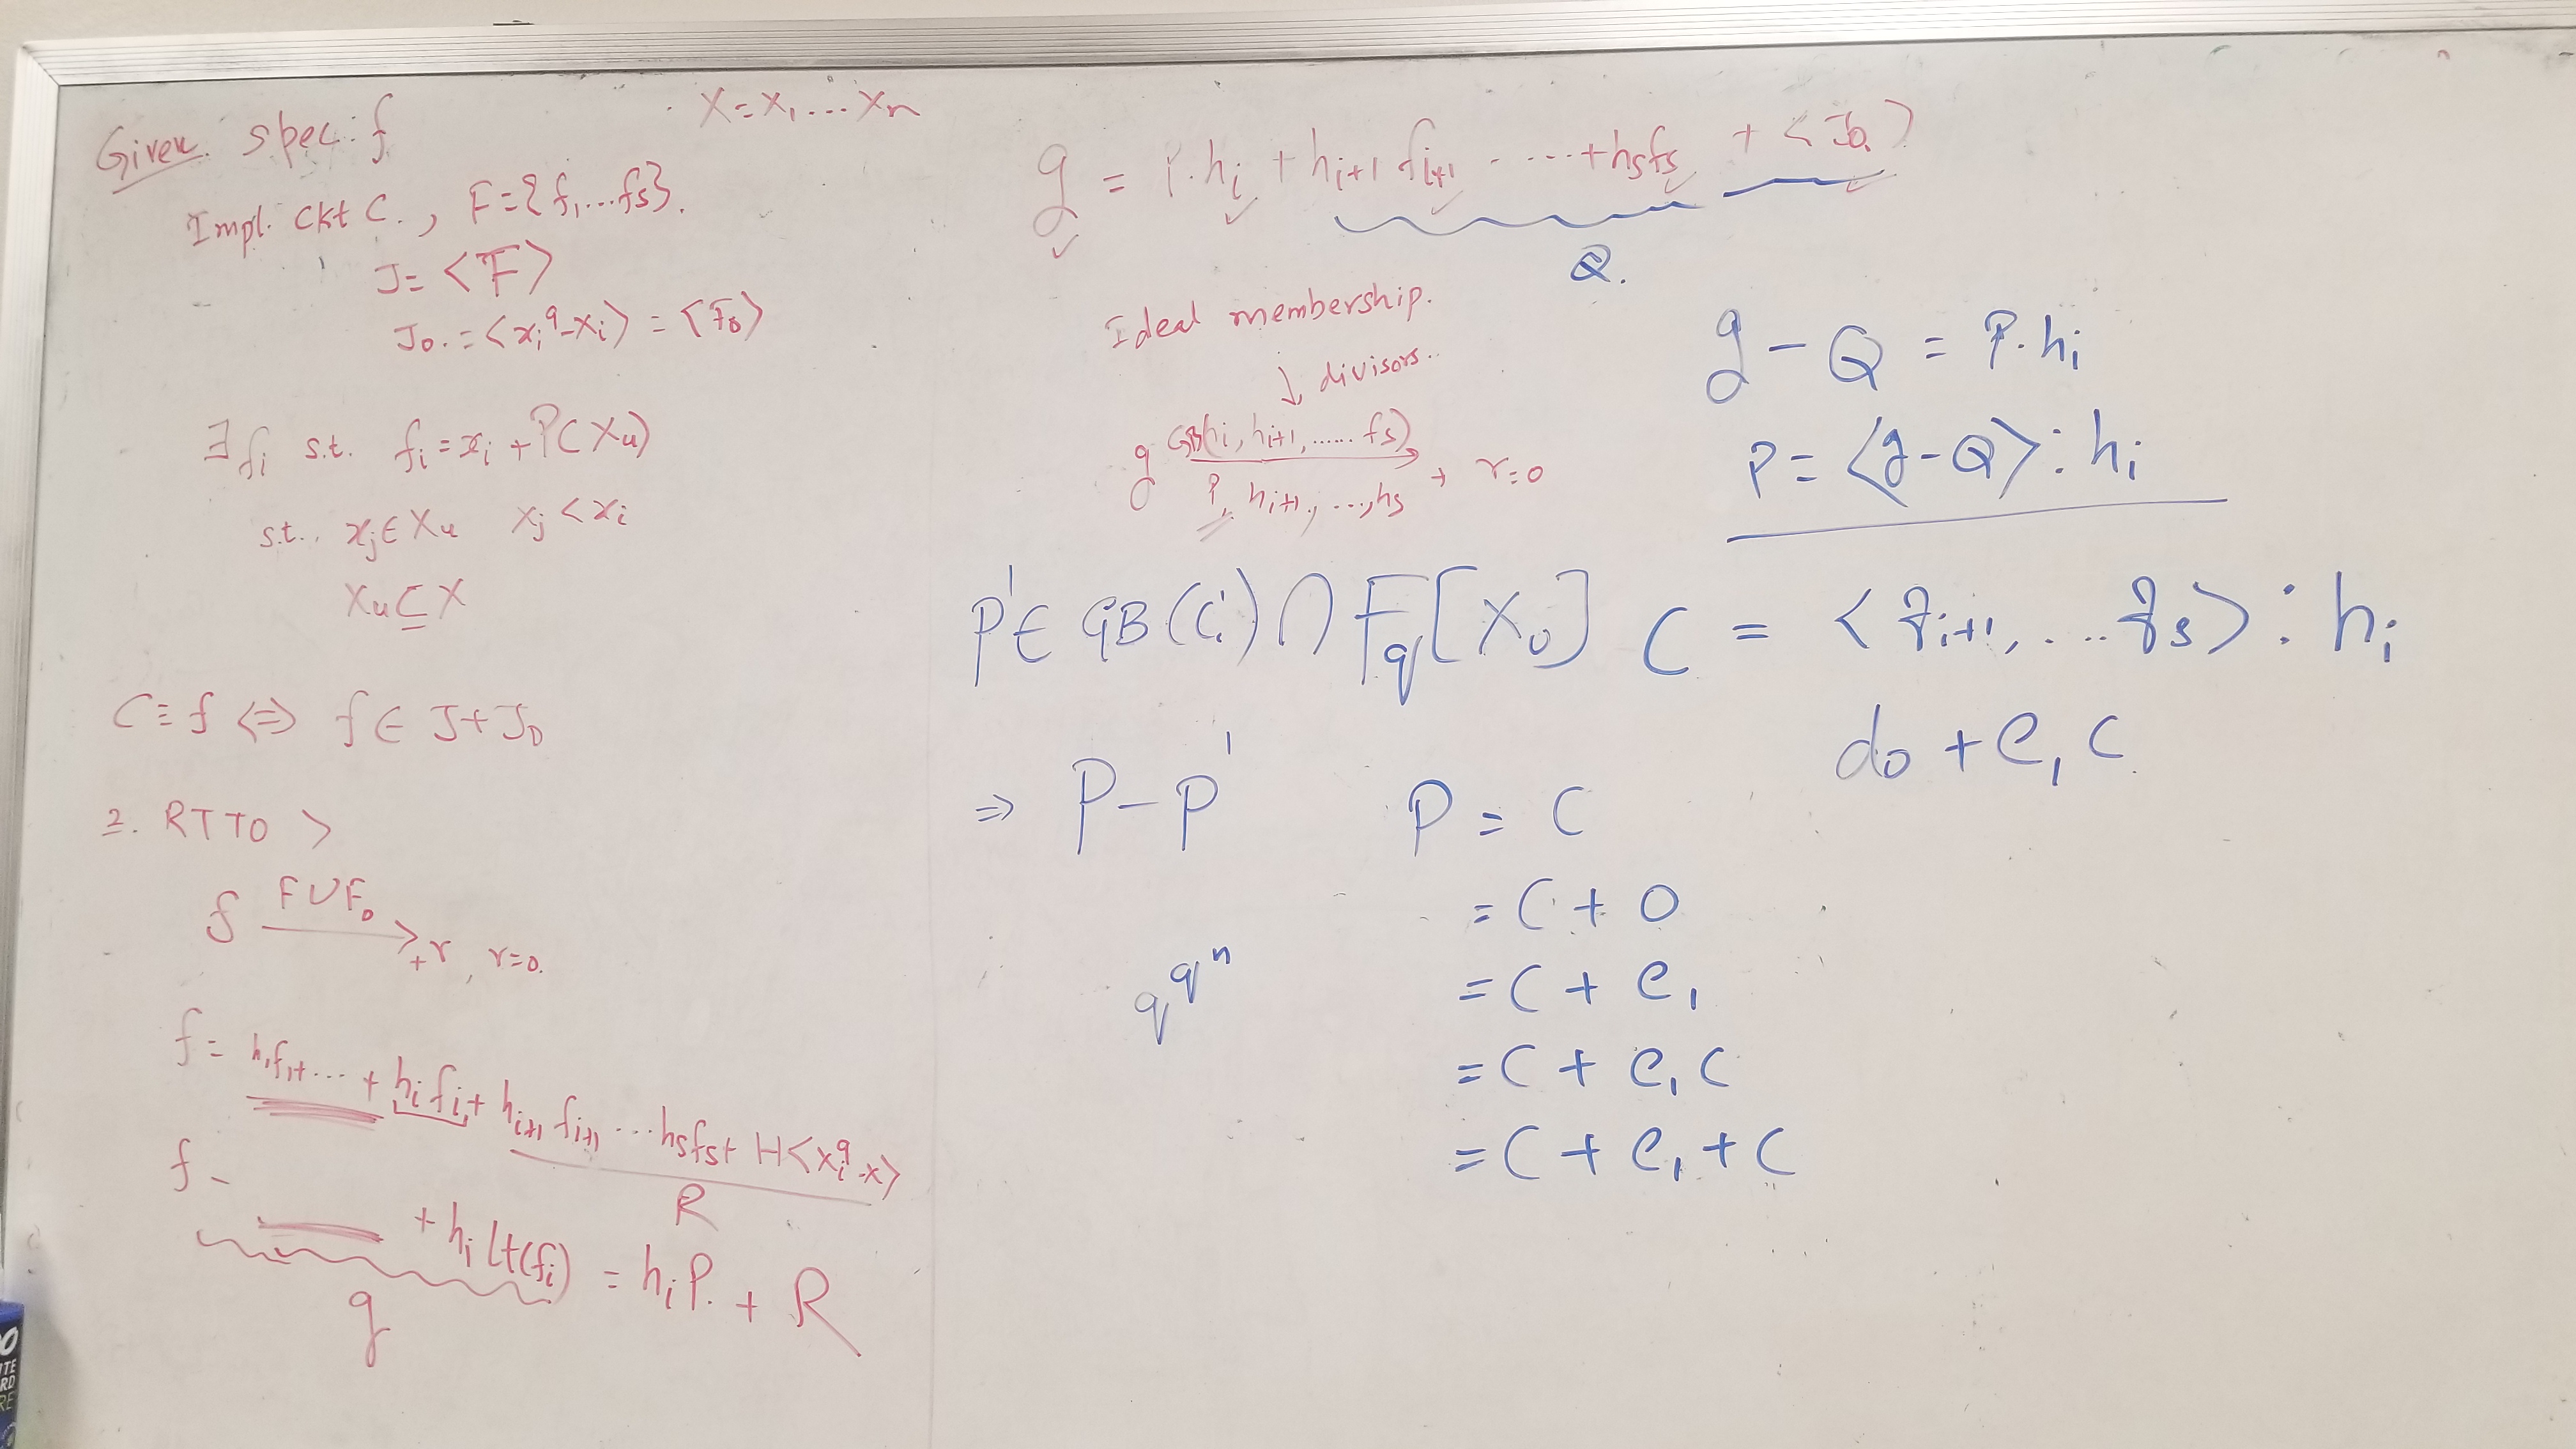 Given spec: f
X = x₁ ... xₙ
Impl. Ckt C., F = {f₁ ... fs}.
J = <F>
J₀ = <xᵢ^q - xᵢ> = <F₀>
∃ fᵢ s.t. fᵢ = xᵢ + P(Xu)
s.t. xⱼ ∈ Xu xⱼ < xᵢ
Xu ⊆ X
C ≡ f ⇔ f ∈ J + J₀
2. RTTO >
f —F ∪ F₀→₊ r, r=0.
f = h₁f₁ + ... + hᵢfᵢ + hᵢ₊₁fᵢ₊₁ ... hsfs + H<xᵢ^q - x>
R
f - ___ + hᵢ lt(fᵢ) = hᵢP. + R
g
g = P.hᵢ + hᵢ₊₁fᵢ₊₁ ..... + hsfs + <J₀>
Q.
Ideal membership.
↓ divisors..
GB(hᵢ, hᵢ₊₁, ...... fs)
g ———→₊ r=0
P, hᵢ₊₁, ..., hs
g - Q = P.hᵢ
P = <g - Q> : hᵢ
P' ∈ GB(C) ∩ Fq[Xu]
C = <fᵢ₊₁, ... fs> : hᵢ
d₀ + e₁c
⇒ P - P'
P = C
= C + 0
= C + e₁
= C + e₁c
= C + e₁ + C
q^q^n